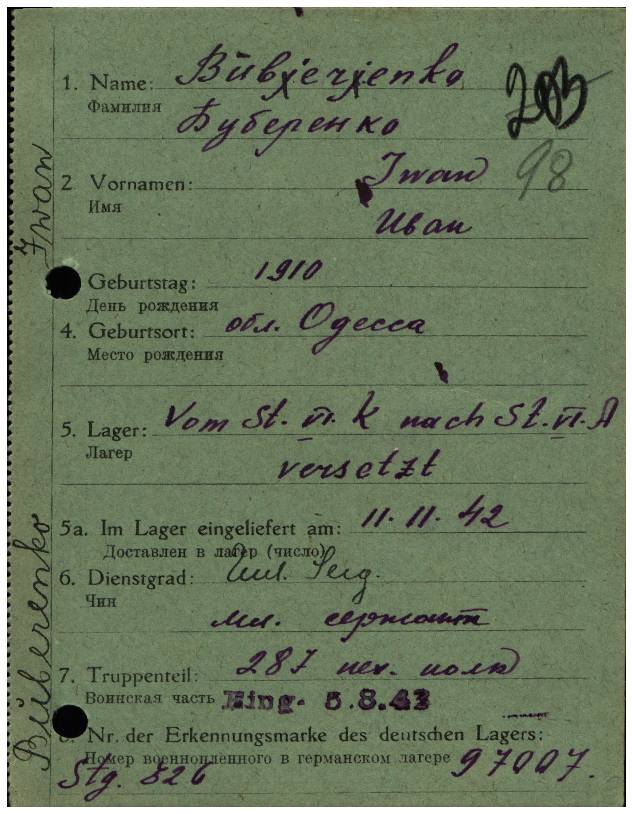 1. Name: Bübjerjenko
Фамилия
Буберенко
203
98
2 Vornamen: Iwan
Имя
Иван
Geburtstag: 1910
День рождения
4. Geburtsort: обл. Одесса
Место рождения
5. Lager: Vom St. VI. K nach St. VI. A
Лагер
versetzt
5a. Im Lager eingeliefert am: 11. 11. 42
Доставлен в лагер (число)
6. Dienstgrad: Unt. Serg.
Чин
мл. сержант
7. Truppenteil: 287 пех. полк
Воинская часть Eing. 5.8.43
Nr. der Erkennungsmarke des deutschen Lagers:
Номер военнопленного в германском лагере 97007.
Stg. 326
Büberenko Iwan